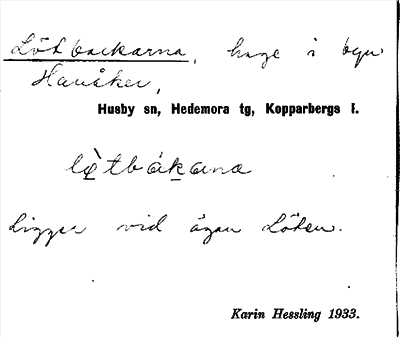 Lötbackarna, hage i byn
Hanåker,
Husby sn, Hedemora tg, Kopparbergs l.
lö̀tbàkana
Ligger vid ägan Löten.
Karin Hessling 1933.